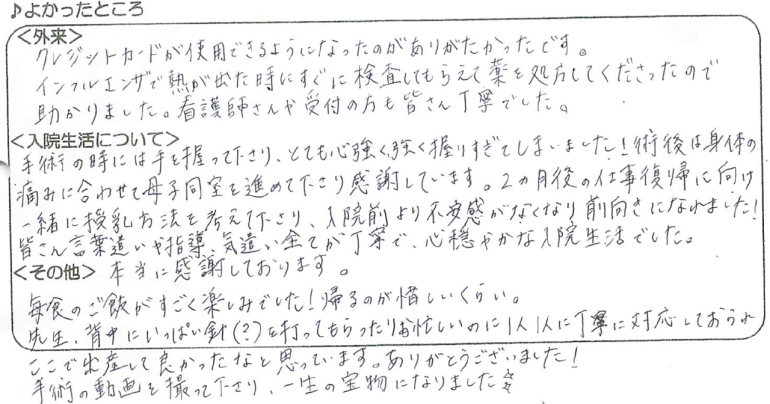 ♪よかったところ
<外来>
クレジットカードが使用できるようになったのがありがたかったです。
インフルエンザで熱が出た時にすぐに検査してもらえて薬を処方してくださったので
助かりました。看護師さんや受付の方も皆さん丁寧でした。
<入院生活について>
手術の時には手を握って下さり、とても心強く強く握りすぎてしまいました!術後は身体の
痛みに合わせて母子同室を進めて下さり感謝しています。2ヵ月後の仕事復帰に向け
一緒に授乳方法を考えて下さり、入院前より不安感がなくなり前向きになれました!
皆さん言葉遣いや指導、気遣い全てが丁寧で、心穏やかな入院生活でした。
<その他> 本当に感謝しております。
毎食のご飯がすごく楽しみでした!帰るのが惜しいくらい。
先生、背中にいっぱい針(?)を打ってもらったりお忙しいのに1人1人に丁寧に対応しておられ
ここで出産して良かったなと思っています。ありがとうございました!
手術の動画を撮って下さり、一生の宝物になりました☆